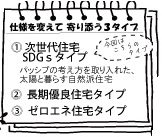 仕様を変えて 寄り添う3タイプ
① 次世代住宅
SDGsタイプ
今回はこちらの
タイプ
パッシブの考え方を取り入れた、
太陽と暮らす自然派住宅
② 長期優良住宅タイプ
③ ゼロエネ住宅タイプ